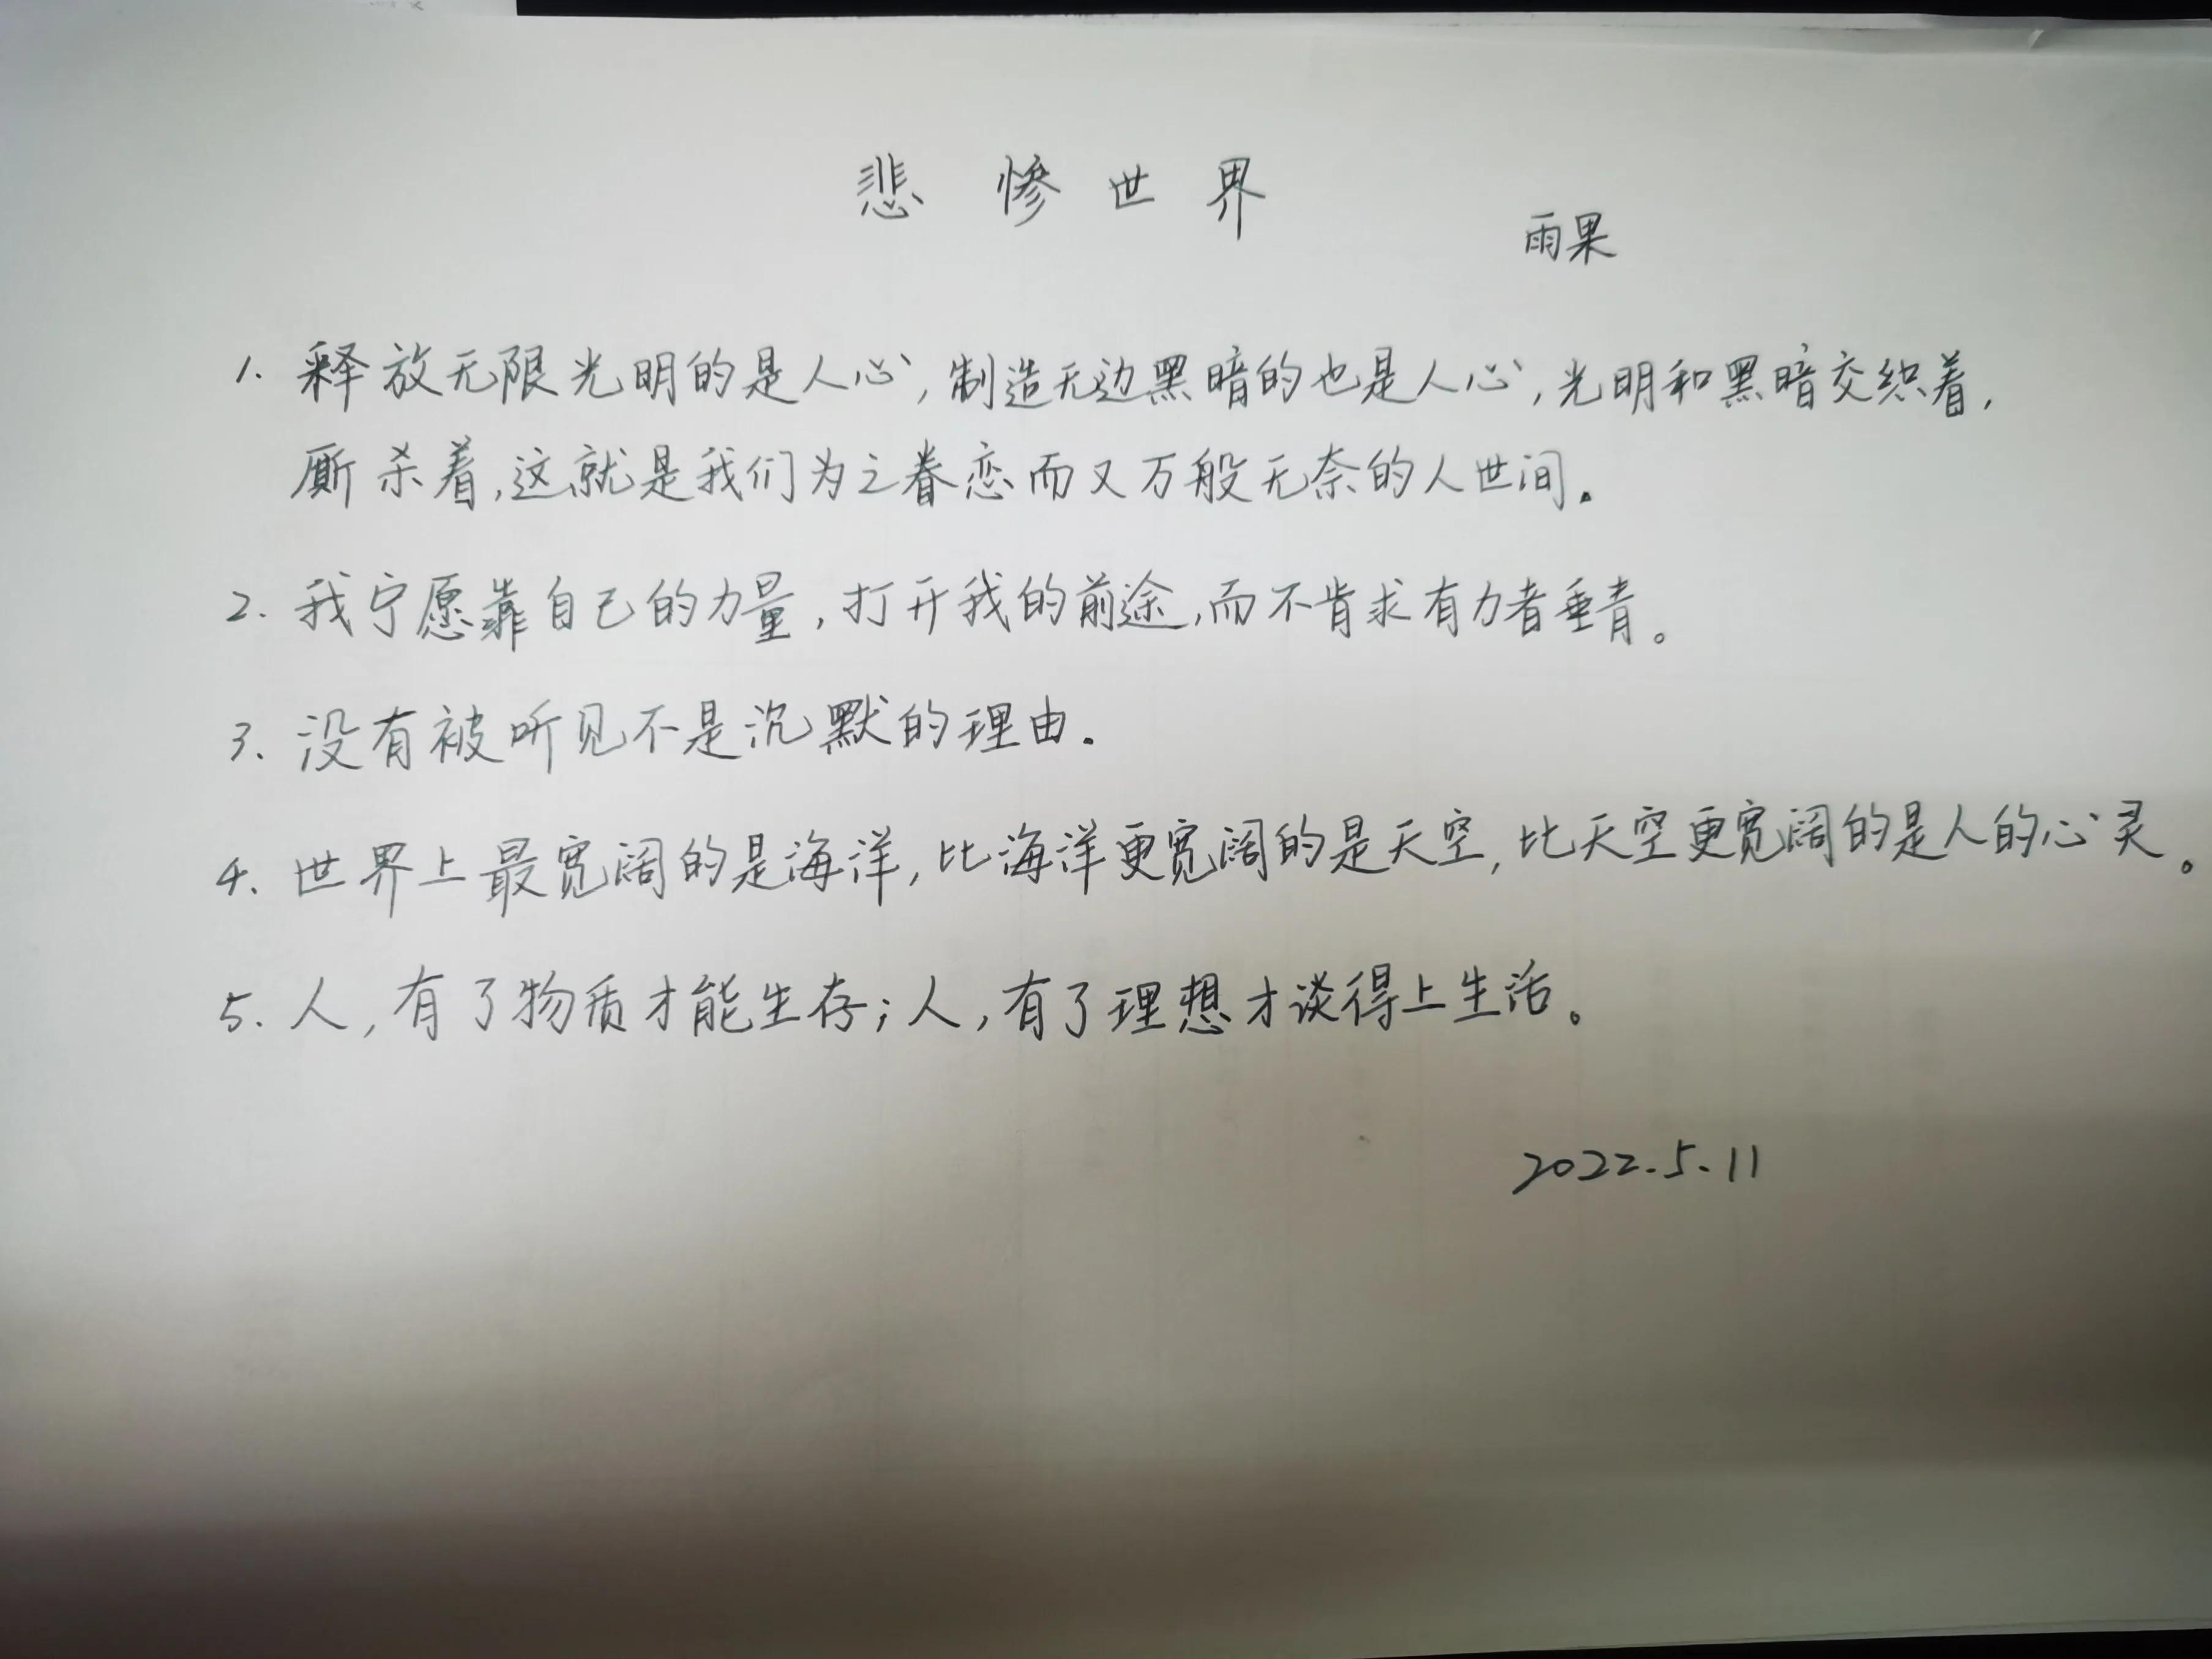 悲惨世界
雨果
1. 释放无限光明的是人心,制造无边黑暗的也是人心,光明和黑暗交织着,
厮杀着,这就是我们为之眷恋而又万般无奈的人世间.
2. 我宁愿靠自己的力量,打开我的前途,而不肯求有力者垂青。
3. 没有被听见不是沉默的理由.
4. 世界上最宽阔的是海洋,比海洋更宽阔的是天空,比天空更宽阔的是人的心灵。
5. 人,有了物质才能生存;人,有了理想才谈得上生活。
2022.5.11